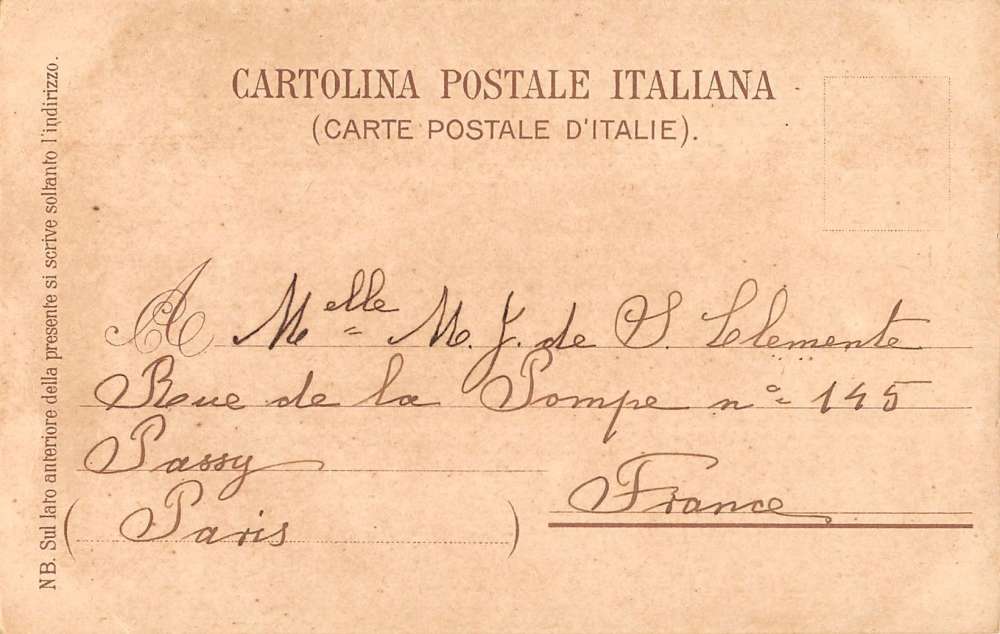 CARTOLINA POSTALE ITALIANA
(CARTE POSTALE D'ITALIE).
NB. Sul lato anteriore della presente si scrive soltanto l'indirizzo.
A Melle M. J. de S. Clemente
Rue de la Pompe nº 145
Passy
(Paris)
France